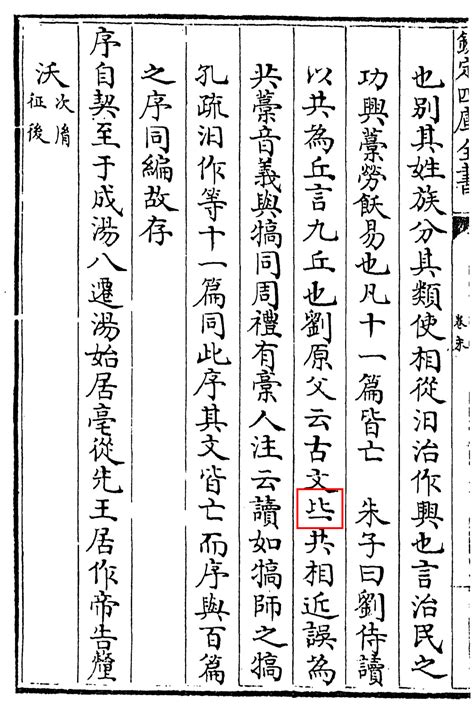 欽定四庫全書
卷末
也別其姓族分其類使相從汩治作興也言治民之
功興藁勞飫易也凡十一篇皆亡　朱子曰劉侍讀
以共為丘言九丘也劉原父云古文丠共相近誤為
共藁音義與犒同周禮有槀人注云讀如犒師之犒
孔疏汩作等十一篇同此序其文皆亡而序與百篇
之序同編故存
序自契至于成湯八遷湯始居亳從先王居作帝告釐
沃次胤征後